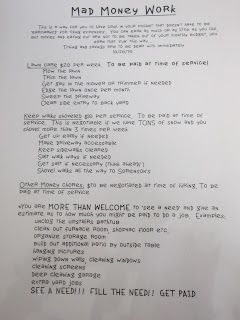 Mad Money Work
This is a way for you to have cash in your pocket that doesn't have to be
earmarked for other expenses. You can earn as much or as little as you can,
but movies and eating out are not to be taken out of your weekly budget, you
earn that fun this way.
Tithing and savings are to be dealt with immediately
Lawn care $20 per week. To be paid at time of service!
Mow the lawn
Trim the lawn
Get gas in the mower or trimmer if needed
Edge the lawn once per month
Sweep the driveway
Clean side entry to back yard
Keep walks shoveled $20 per service. To be paid at time of
service. This is negotiable if we have TONS of snow and you
shovel more than 3 times per week
Get up early if needed
Make driveway accessable
Keep sidewalks cleaned
Salt walk ways if needed
Get salt if necessary (think ahead)
Shovel walks all the way to Sorensons
Other Money chores: $ to be negotiated at time of hiring. To be
paid at time of service
*You are MORE THAN WELCOME to 'see a need' and give an
estimate as to how much you might be paid to do a job. Examples:
unclog the upstairs bathtub
clean out furnace room, shopvac floor etc.
organize storage room
build out additional patio by outside table
hanging pictures
wiping down walls, cleaning windows
cleaning screens
deep cleaning garage
extra yard jobs
SEE A NEED!!! FILL THE NEED!! GET PAID